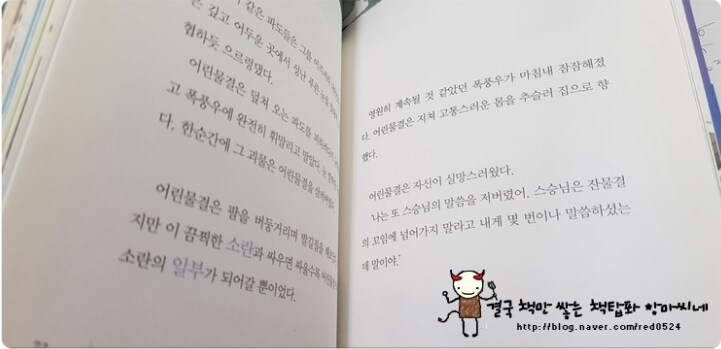 같은 파도들은 그를
은 깊고 어두운 곳에서 성난 푸른 눈을
험하듯 으르렁댔다.
어린물결은 덮쳐 오는 파도를
고 폭풍우에 완전히 휘말리고 말았다.
다. 한순간에 그 괴물은 어린물결을
어린물결은 팔을 버둥거리며 발길질을
지만 이 끔찍한 소란과 싸우면 싸울수록
소란의 일부가 되어갈 뿐이었다.
영원히 계속될 것 같았던 폭풍우가 마침내 잠잠해졌
다. 어린물결은 지쳐 고통스러운 몸을 추슬러 집으로 향
했다.
어린물결은 자신이 실망스러웠다.
'나는 또 스승님의 말씀을 저버렸어. 스승님은 잔물결
의 꼬임에 넘어가지 말라고 내게 몇 번이나 말씀하셨는
데 말이야.'
결국 책만 쌓는 책탑퐈 항마씨네
http://blog.naver.com/red0524